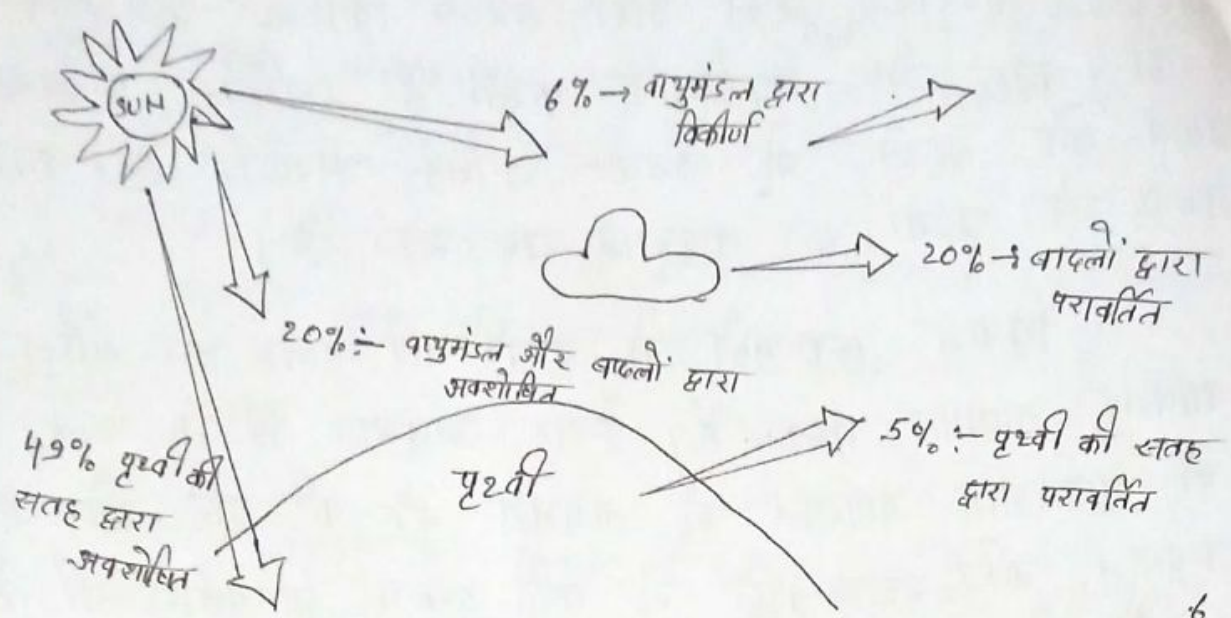 SUN
6% → वायुमंडल द्वारा
विकीर्ण
20% → बादलों द्वारा
परावर्तित
20% :- वायुमंडल और बादलों द्वारा
अवशोषित
49% पृथ्वी की
सतह द्वारा
अवशोषित
पृथ्वी
5% :- पृथ्वी की सतह
द्वारा परावर्तित